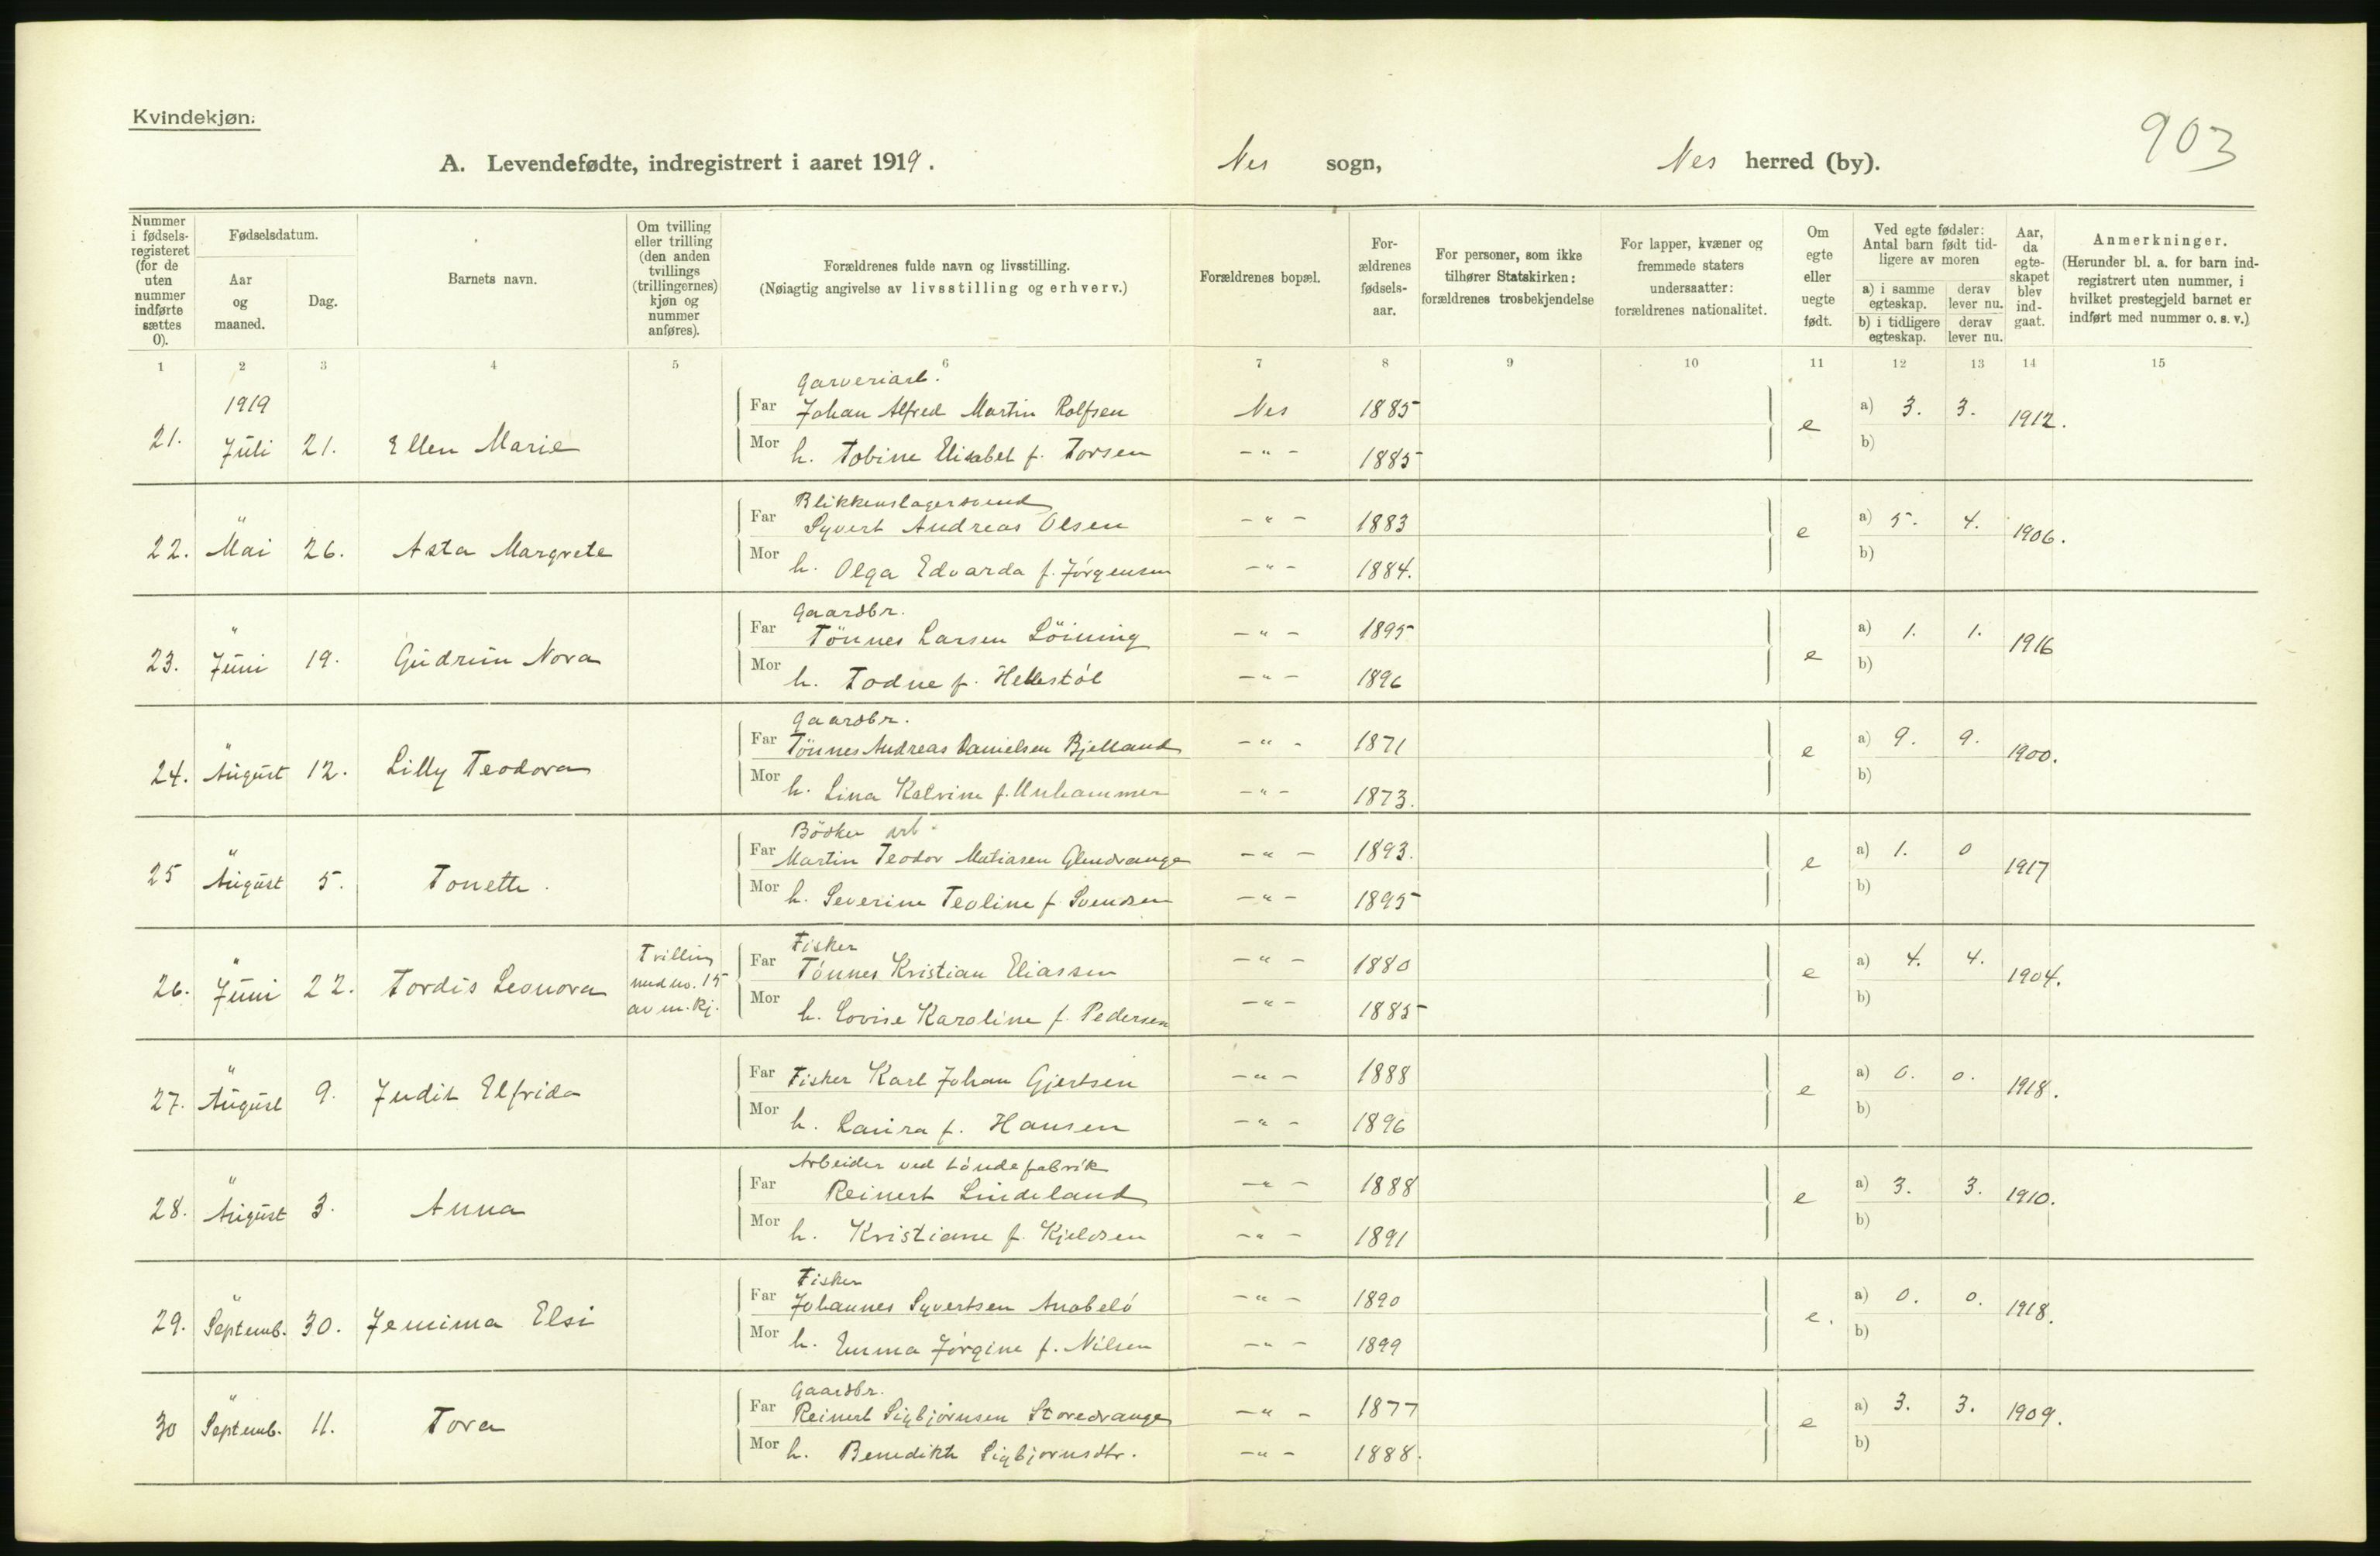 Kvindekjøn.
903
A. Levendefødte, indregistrert i aaret 1919. Nes sogn, Nes herred (by).
Nummer i fødsels-registeret (for de uten nummer indførte sættes 0).
Fødselsdatum.
Aar og maaned.
Dag.
Barnets navn.
Om tvilling eller trilling (den anden tvillings (trillingernes) kjøn og nummer anføres).
Forældrenes fulde navn og livsstilling.
(Nøiagtig angivelse av livsstilling og erhverv.)
Forældrenes bopæl.
For-ældrenes fødsels-aar.
For personer, som ikke tilhører Statskirken: forældrenes trosbekjendelse
For lapper, kvæner og fremmede staters undersaatter: forældrenes nationalitet.
Om egte eller uegte født.
Ved egte fødsler: Antal barn født tid-ligere av moren
a) i samme egteskap. derav lever nu.
b) i tidligere egteskap. derav lever nu.
Aar, da egte-skapet blev ind-gaat.
Anmerkninger.
(Herunder bl. a. for barn ind-registrert uten nummer, i hvilket prestegjeld barnet er indført med nummer o. s. v.)
1 2 3 4 5 6 7 8 9 10 11 12 13 14 15
Garveriarb.
1919 Far Johan Alfred Martin Rolfsen Nes 1885 e a) 3. 3. 1912.
21. Juli 21. Ellen Marie Mor h. Tobine Elisabet f. Torsen -"- 1885 b)
Blikkenslagersvend
" Far Syvert Andreas Olsen -"- 1883 e a) 5. 4. 1906.
22. Mai 26. Asta Margrete Mor h. Olga Edvarda f. Jørgensen -"- 1884. b)
Gaardbr.
" Far Tønnes Larsen Löining -"- 1895 e a) 1. 1. 1916
23. Juni 19. Gudrun Nova Mor h. Todne f. Hellestøl -"- 1896 b)
Gaardbr.
" Far Tönnes Andreas Danielsen Bjelland -"- 1871 e a) 9. 9. 1900.
24. August 12. Lilly Teodora Mor h. Lina Katrine f. Unhammer -"- 1873. b)
Bödker arb.
" Far Martin Teodor Matiasen Glendrange -"- 1893. e a) 1. 0 1917
25 August 5. Tonette. Mor h. Severine Teoline f. Svendsen -"- 1895 b)
Tvilling Fisker
" Far Tónnes Kristian Eliassen -"- 1880 e a) 4. 4. 1904.
26. Juni 22. Tordis Leonora med no. 15 av m.kj. Mor h. Lovise Karoline f. Pedersen -"- 1885 b)
" Far Fisker Karl Johan Gjertsen -"- 1888 e a) 0. 0. 1918.
27. August 9. Judit Elfrida Mor h. Laura f. Hansen -"- 1896 b)
Arbeider ved tóndefabrik
" Far Reinert Lindeland -"- 1888 e a) 3. 3. 1910.
28. August 3. Anna Mor h. Kristiane f. Kjeldsen -"- 1891 b)
Fisker
" Far Johannes Syvertsen Anabeló -"- 1890 e. a) 0. 0. 1918.
29. Septemb. 30. Jemima Elsi Mor h. Emma Jórgine f. Nilsen -"- 1899 b)
Gaardbr.
" Far Reinert Sigbjørnsen Storedrange -"- 1877 e a) 3. 3. 1909.
30 Septemb. 11. Tora Mor h. Benedikte Sigbjørnsdtr. -"- 1888. b)